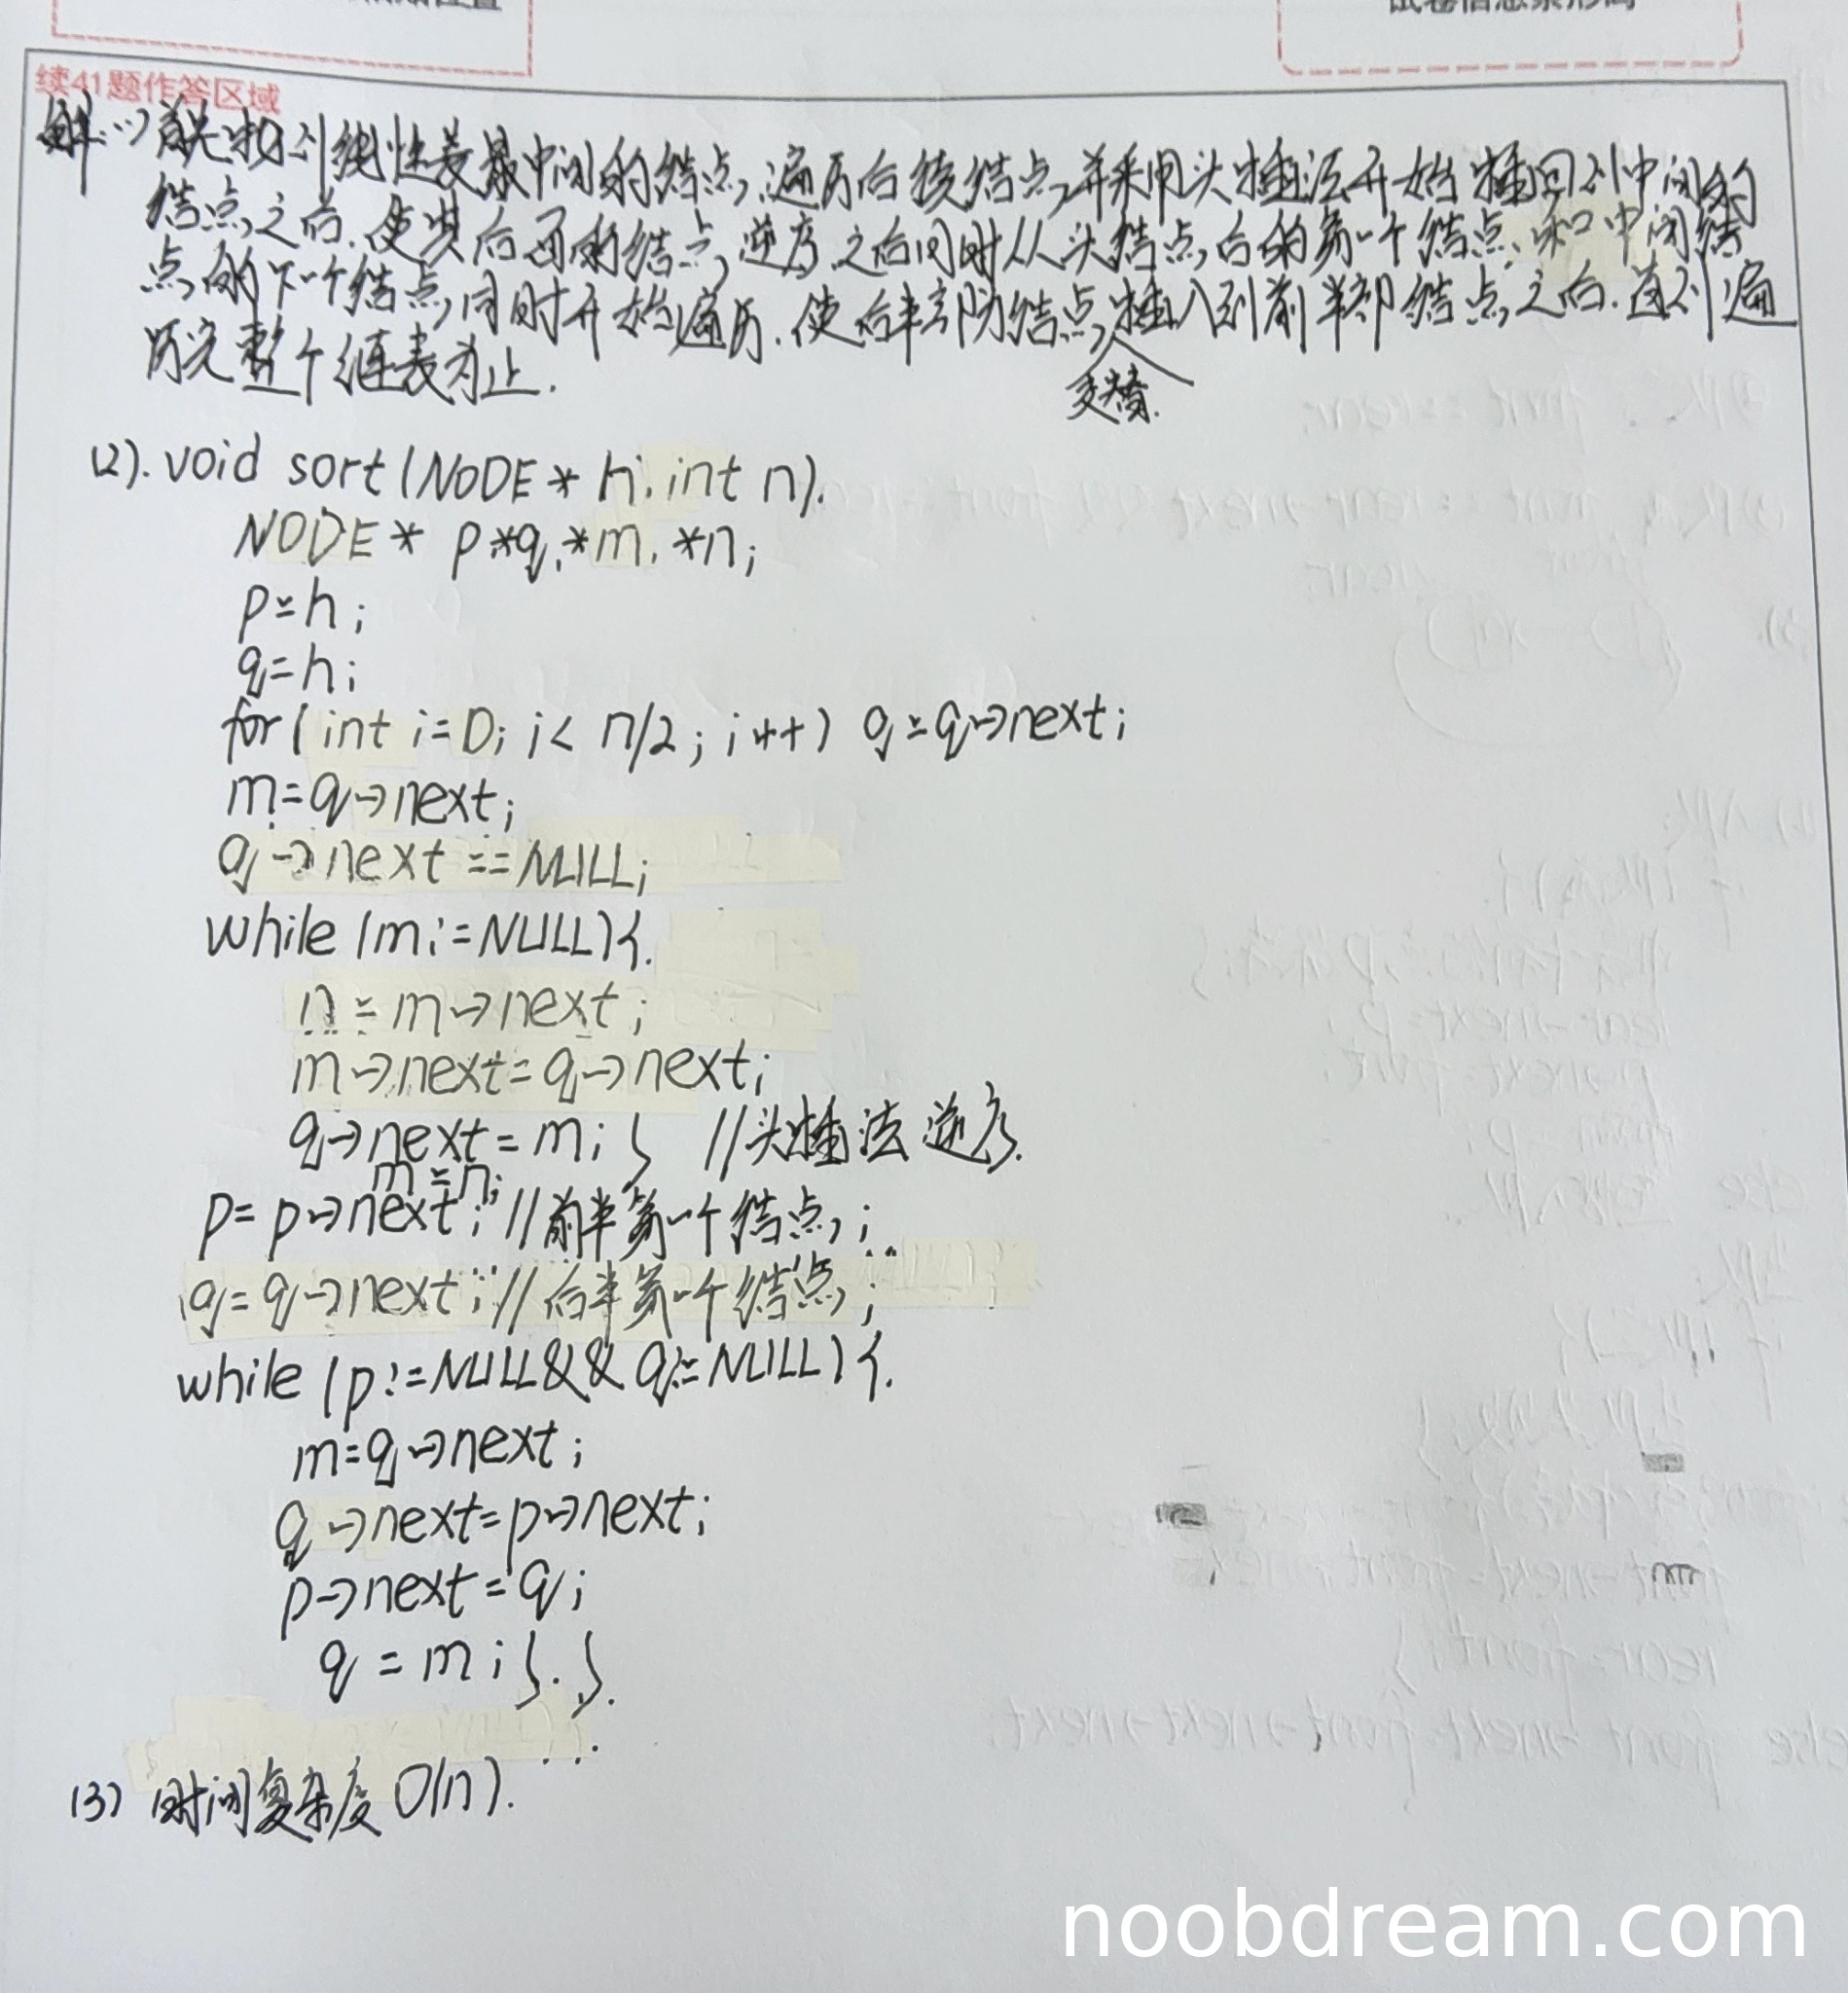 试卷信息条形码
续41题作答区域
解:(1)首先找到线性表最中间的结点,遍历后续结点,并采用头插法开始插回到中间的
结点之后.使其后面的结点逆序.之后同时从头结点后的第一个结点和中间结
点的下一个结点,同时开始遍历.使后半部分结点插入到前半部结点之后.直到遍
历完整个链表为止.
交替.
(2). void sort(NODE * h, int n).
NODE * p,*q,*m,*n;
p=h;
q=h;
for(int i=0; i< n/2; i++) q=q->next;
m=q->next;
q->next ==NULL;
while(m!=NULL){.
n=m->next;
m->next=q->next;
q->next=m;} //头插法逆序.
m=n;
p=p->next; //前半第一个结点;
q=q->next; //后半第一个结点;
while(p!=NULL&&q!=NULL){.
m=q->next;
q->next=p->next;
p->next=q;
q=m;}.}.
(3) 时间复杂度O(n).
noobdream.com